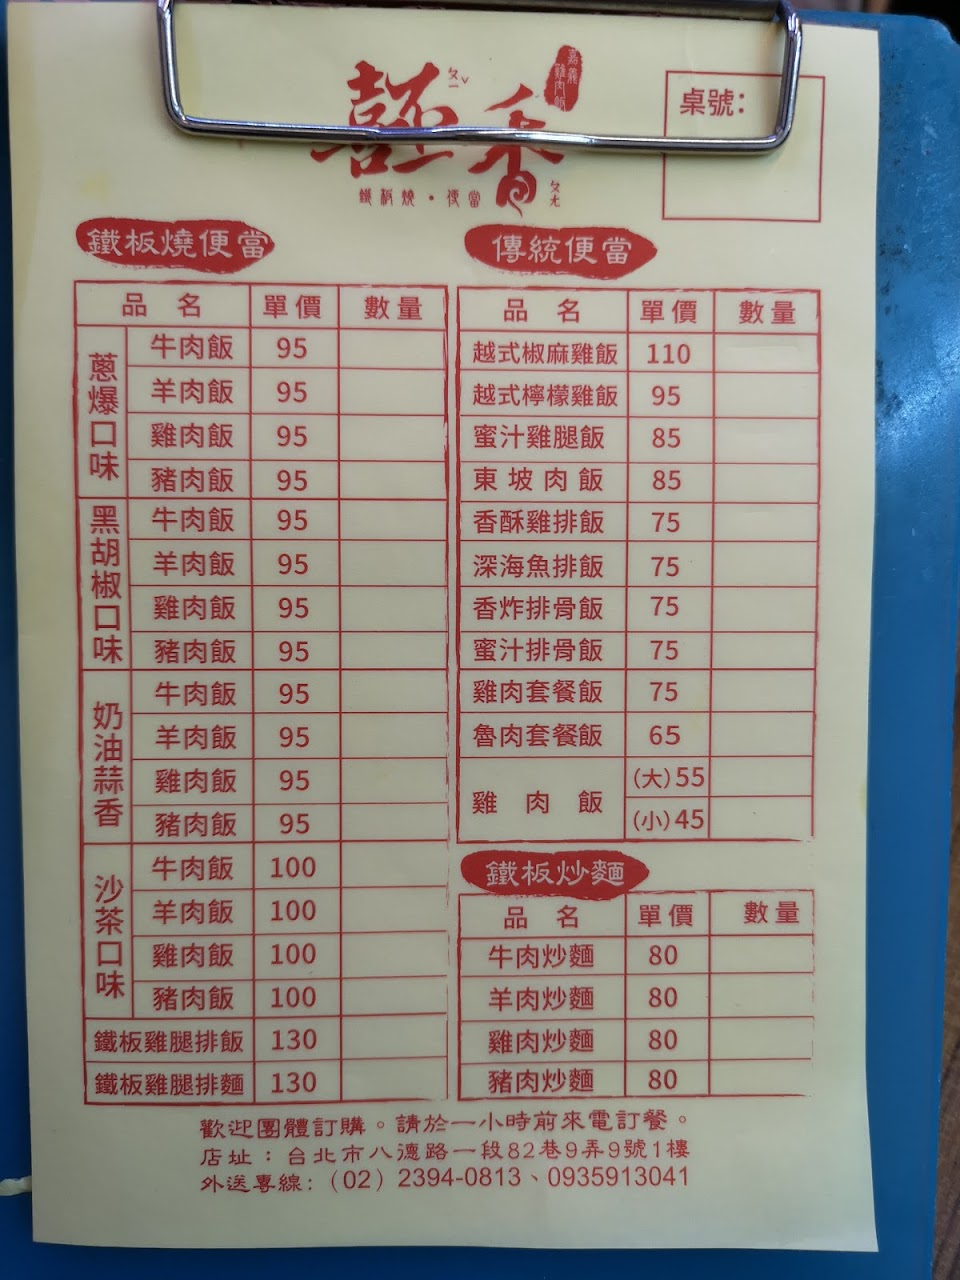 嘉義
雞肉飯
ㄆㄧˇ
香
ㄆㄤ
鐵板燒・便當
桌號：
鐵板燒便當
品名 單價 數量
蔥爆口味
牛肉飯 95
羊肉飯 95
雞肉飯 95
豬肉飯 95
黑胡椒口味
牛肉飯 95
羊肉飯 95
雞肉飯 95
豬肉飯 95
奶油蒜香
牛肉飯 95
羊肉飯 95
雞肉飯 95
豬肉飯 95
沙茶口味
牛肉飯 100
羊肉飯 100
雞肉飯 100
豬肉飯 100
鐵板雞腿排飯 130
鐵板雞腿排麵 130
傳統便當
品名 單價 數量
越式椒麻雞飯 110
越式檸檬雞飯 95
蜜汁雞腿飯 85
東坡肉飯 85
香酥雞排飯 75
深海魚排飯 75
香炸排骨飯 75
蜜汁排骨飯 75
雞肉套餐飯 75
魯肉套餐飯 65
雞肉飯 (大)55
(小)45
鐵板炒麵
品名 單價 數量
牛肉炒麵 80
羊肉炒麵 80
雞肉炒麵 80
豬肉炒麵 80
歡迎團體訂購。請於一小時前來電訂餐。
店址：台北市八德路一段82巷9弄9號1樓
外送專線：（02）2394-0813、0935913041